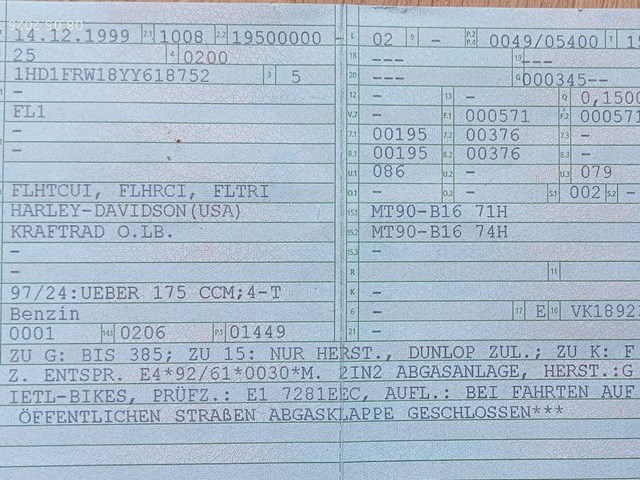 08.05.2026
14.12.1999 2.1 1008 2.2 19500000 - L 02 9 - P.2 P.4 0049/05400 T
25 4 0200 18 --- 19 ---
1HD1FRW18YY618752 3 5 20 --- G 000345--
- 12 - 13 - Q 0,1500
FL1 V.7 - F.1 000571 F.2 000571
- 7.1 00195 7.2 00376 7.3 -
- 8.1 00195 8.2 00376 8.3 -
U.1 086 U.2 - U.3 079
FLHTCUI, FLHRCI, FLTRI O.1 - O.2 - S.1 002 S.2 -
HARLEY-DAVIDSON(USA) 15.1 MT90-B16 71H
KRAFTRAD O.LB. 15.2 MT90-B16 74H
- 15.3 -
- R 11
97/24:UEBER 175 CCM;4-T K -
Benzin 6 - 17 E 16 VK1892
0001 14.1 0206 P.1 01449 21 -
ZU G: BIS 385; ZU 15: NUR HERST., DUNLOP ZUL.; ZU K: F
Z. ENTSPR. E4*92/61*0030*M. 2IN2 ABGASANLAGE, HERST.:G
IETL-BIKES, PRÜFZ.: E1 7281EEC, AUFL.: BEI FAHRTEN AUF
ÖFFENTLICHEN STRAßEN ABGASKLAPPE GESCHLOSSEN***